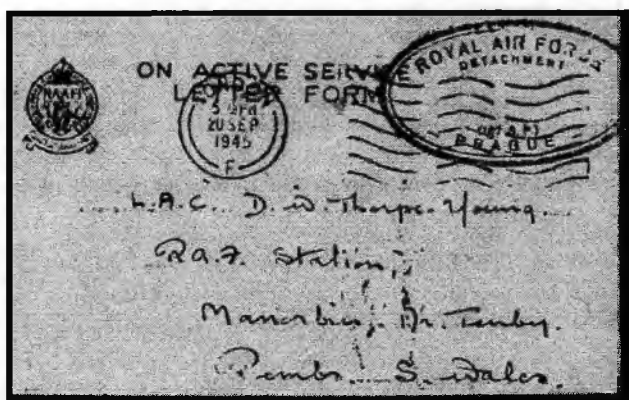 NAAFI
ON ACTIVE SERVICE
LETTER FORM
5 PM
20 SEP
1945
F
ROYAL AIR FORCE
DETACHMENT
PRAGUE
L.A.C. D. W. Thorpe-Young
R.A.F. Station,
Manorbier, Nr. Tenby.
Pembs. S. Wales.